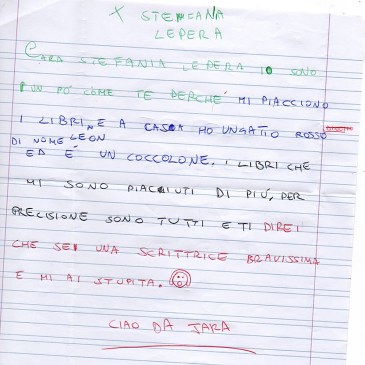 X STEFANA
LEPERA
CARA STEFANIA LEPERA IO SONO
UN PO' COME TE PERCHÉ MI PIACCIONO
I LIBRI, E A CASA HO UN GATTO ROSSO
DI NOME LEON
ED E' UN COCCOLONE. I LIBRI CHE
MI SONO PIACIUTI DI PIÚ, PER
PRECISIONE SONO TUTTI E TI DIREI
CHE SEI UNA SCRITTRICE BRAVISSIMA
E MI AI STUPITA.
CIAO DA JARA